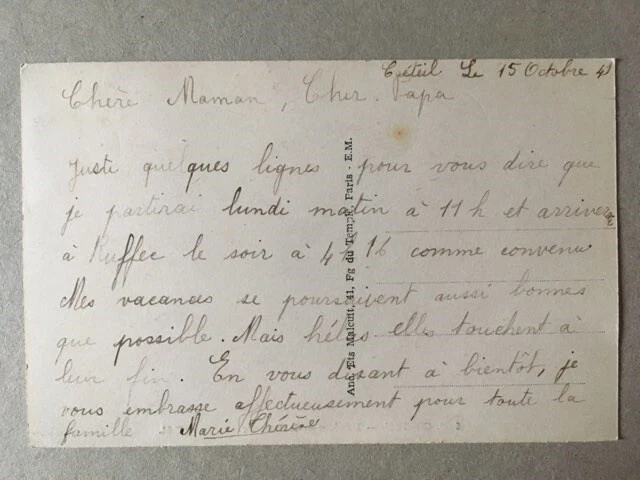 Créteil Le 15 Octobre 41
Chère Maman, Cher Papa
Juste quelques lignes pour vous dire que
je partirai lundi matin à 11 h et arriverai
à Ruffec le soir à 4h 16 comme convenu
Mes vacances se poursuivent aussi bonnes
que possible. Mais hélas elles touchent à
leur fin. En vous disant à bientôt, je
vous embrasse affectueusement pour toute la
famille Marie Thérèse
Anc. Ets Malcuit, 41, Fg du Temple, Paris - E.M.